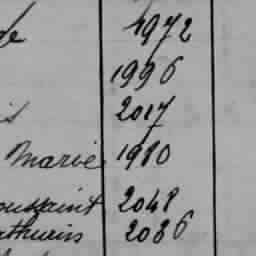 de 1972
1996
s 2017
Marie 1980
oussaint 2048
athurin 2086